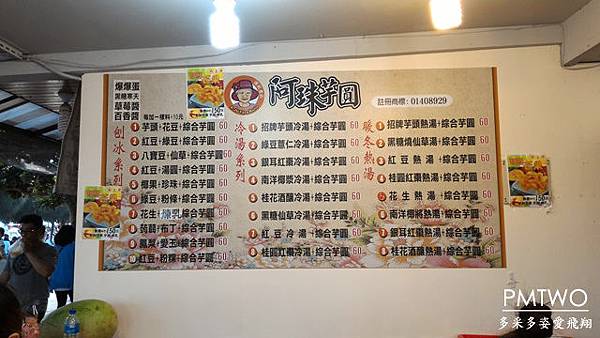 爆爆蛋
黑糖寒天
草莓醬
百香醬
每加一樣料+10元
阿珠芋圓
註冊商標: 01408929
刨冰系列
1 芋頭+花豆+綜合芋圓 60
2 紅豆+綠豆+綜合芋圓 60
3 八寶豆+仙草+綜合芋圓 60
4 紅豆+湯圓+綜合芋圓 60
5 椰果+珍珠+綜合芋圓 60
6 綠豆+粉條+綜合芋圓 60
7 花生+煉乳+綜合芋圓 60
8 蒟蒻+布丁+綜合芋圓 60
9 鳳梨+愛玉+綜合芋圓 60
10 紅豆+粉粿+綜合芋圓 60
冷湯系列
1 招牌芋頭冷湯+綜合芋圓 60
2 綠豆薏仁冷湯+綜合芋圓 60
3 銀耳紅棗冷湯+綜合芋圓 60
4 南洋椰漿冷湯+綜合芋圓 60
5 桂花酒釀冷湯+綜合芋圓 60
6 黑糖仙草冷湯+綜合芋圓 60
7 紅豆冷湯+綜合芋圓 60
8 桂圓紅棗冷湯+綜合芋圓 60
暖冬熱湯
1 招牌芋頭熱湯+綜合芋圓 60
2 黑糖燒仙草湯+綜合芋圓 60
3 紅豆熱湯+綜合芋圓 60
4 桂圓紅棗熱湯+綜合芋圓 60
5 花生熱湯+綜合芋圓 60
6 南洋椰將熱湯+綜合芋圓 60
7 銀耳紅棗熱湯+綜合芋圓 60
8 桂花酒釀熱湯+綜合芋圓 60
PMTWO
多采多姿愛飛翔